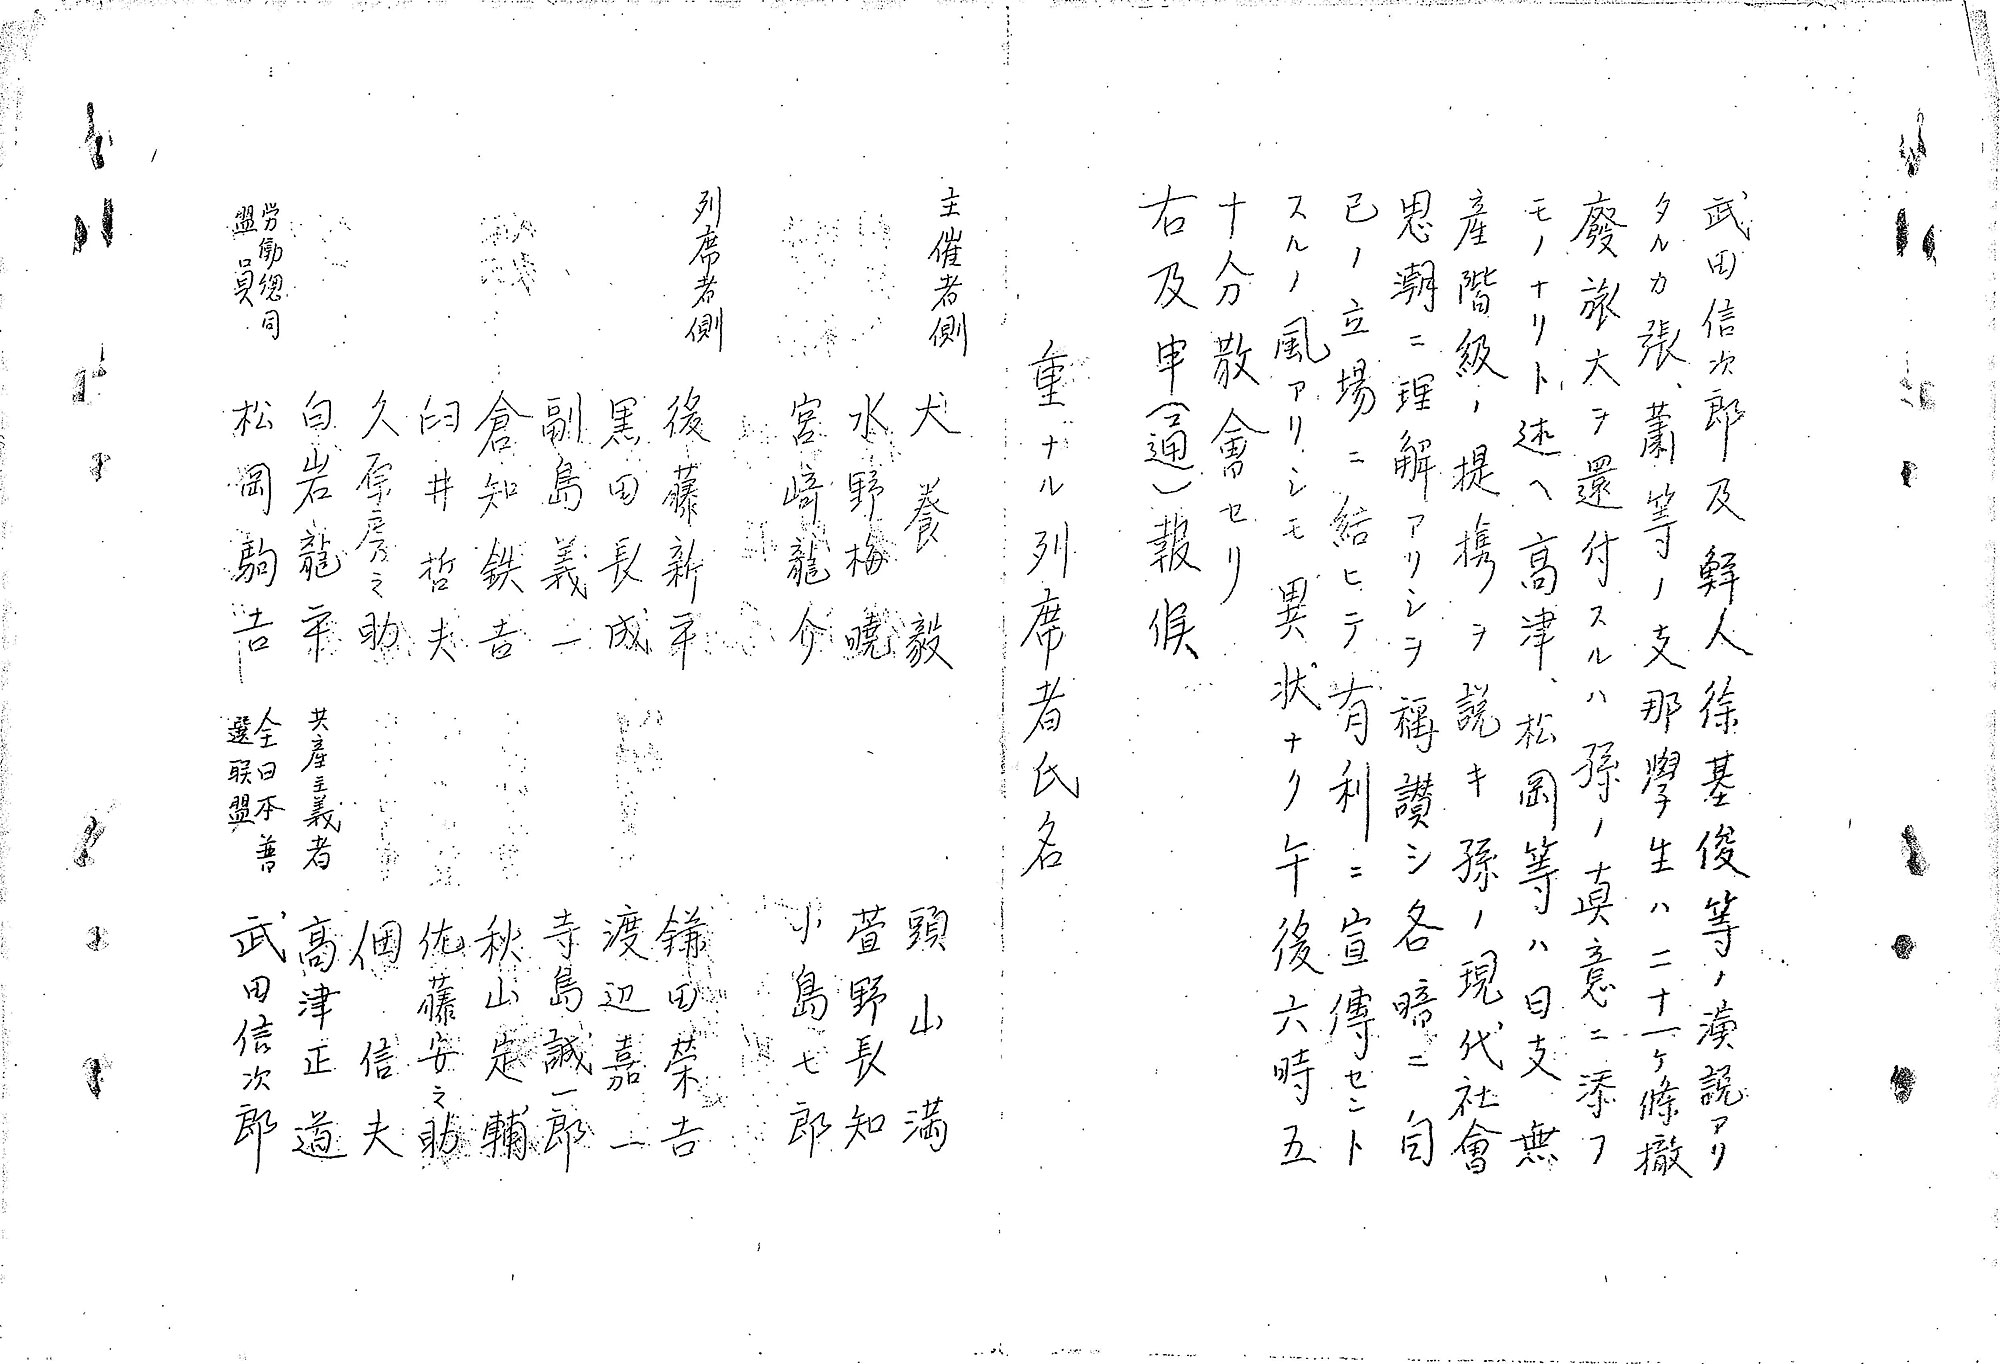 武田信次郎及鮮人徐基俊等ノ演説アリ
タルカ張、蕭等ノ支那學生ハ二十一ケ條撤
廢旅大ヲ還付スルハ孫ノ真意ニ添フ
モノナリト述ヘ高津、松岡等ハ日支無
産階級ノ提携ヲ説キ孫ノ現代社會
思潮ニ理解アリシヲ稱讃シ各暗ニ自
己ノ立場ニ結ヒテ有利ニ宣傳セント
スルノ風アリシモ異状ナク午後六時五
十分散會セリ
右及申(通)報候
重ナル列席者氏名
主催者側 犬養毅 頭山満
水野梅曉 萱野長知
宮崎龍介 小島七郎
列席者側 後藤新平 鎌田榮吉
黒田長成 渡辺嘉一
副島義一 寺島誠一郎
倉知鉄吉 秋山定輔
臼井哲夫 佐藤安之助
久原房之助 佃信夫
白岩龍平 共産主義者 高津正道
労働總同盟員 松岡駒吉 全日本普選聯盟 武田信次郎